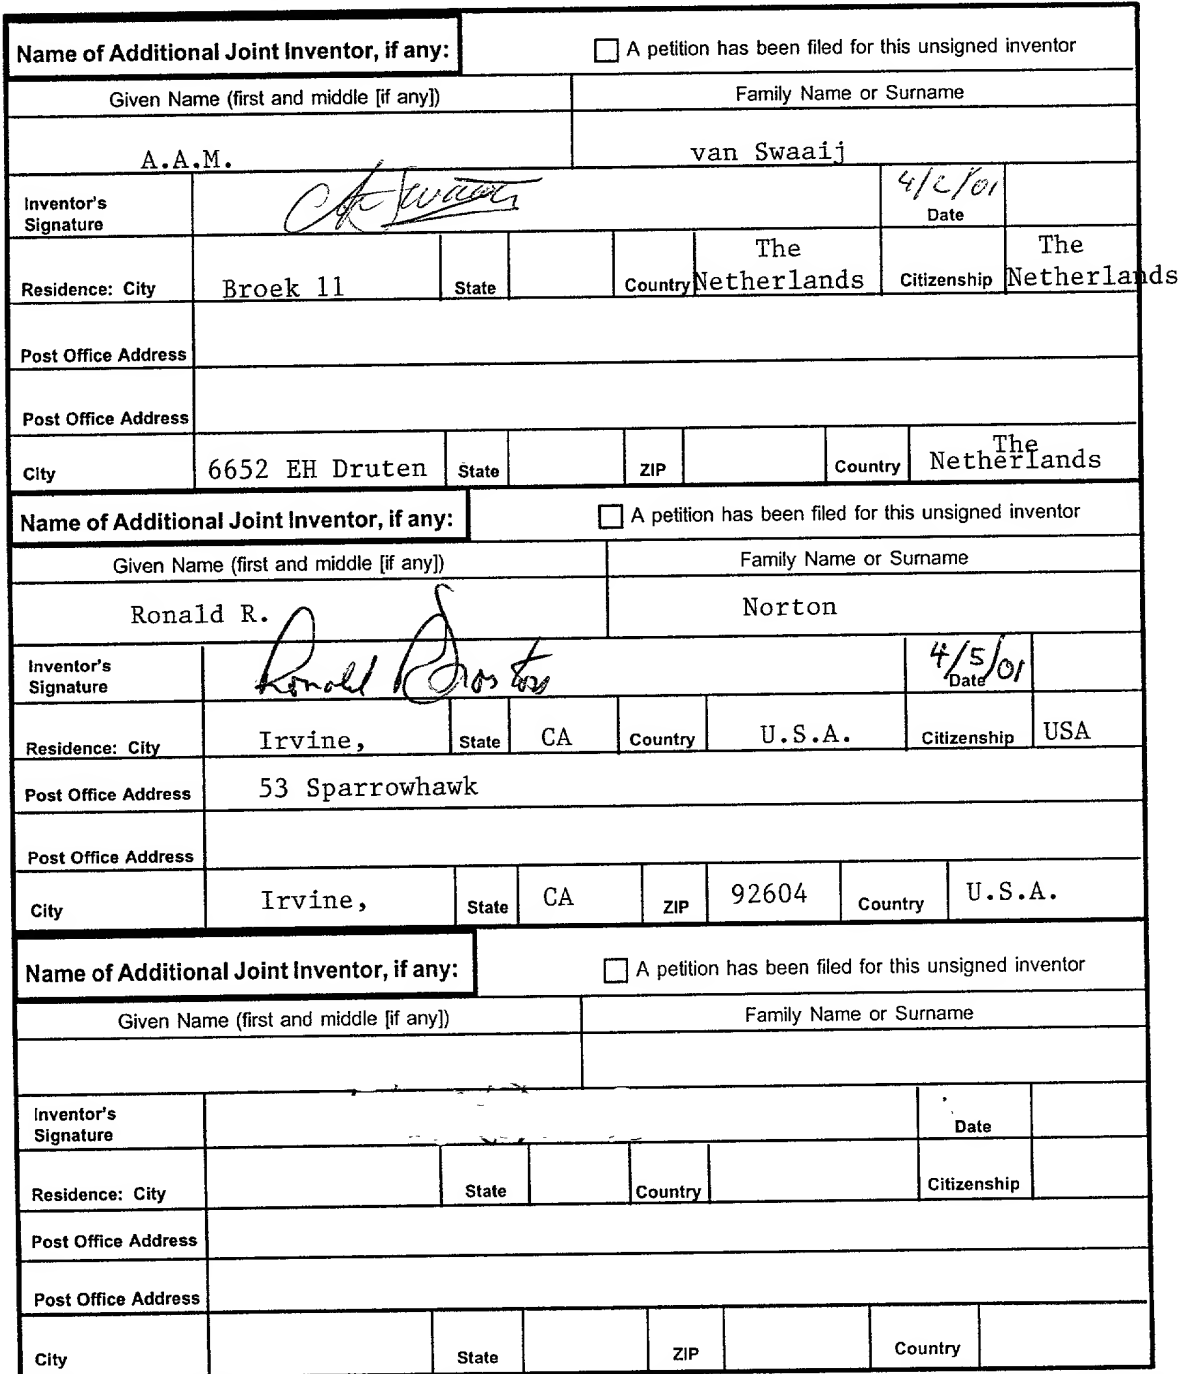 Name of Additional Joint Inventor, if any:
A petition has been filed for this unsigned inventor
Given Name (first and middle [if any])
Family Name or Surname
A.A.M.
van Swaaij
Inventor's
Signature
4/2/01
Date
Residence: City
Broek 11
State
Country
The
Netherlands
Citizenship
The
Netherlands
Post Office Address
Post Office Address
City
6652 EH Druten
State
ZIP
Country
The
Netherlands
Name of Additional Joint Inventor, if any:
A petition has been filed for this unsigned inventor
Given Name (first and middle [if any])
Family Name or Surname
Ronald R.
Norton
Inventor's
Signature
Ronald R Norton
4/5/01
Date
Residence: City
Irvine,
State
CA
Country
U.S.A.
Citizenship
USA
Post Office Address
53 Sparrowhawk
Post Office Address
City
Irvine,
State
CA
ZIP
92604
Country
U.S.A.
Name of Additional Joint Inventor, if any:
A petition has been filed for this unsigned inventor
Given Name (first and middle [if any])
Family Name or Surname
Inventor's
Signature
Date
Residence: City
State
Country
Citizenship
Post Office Address
Post Office Address
City
State
ZIP
Country